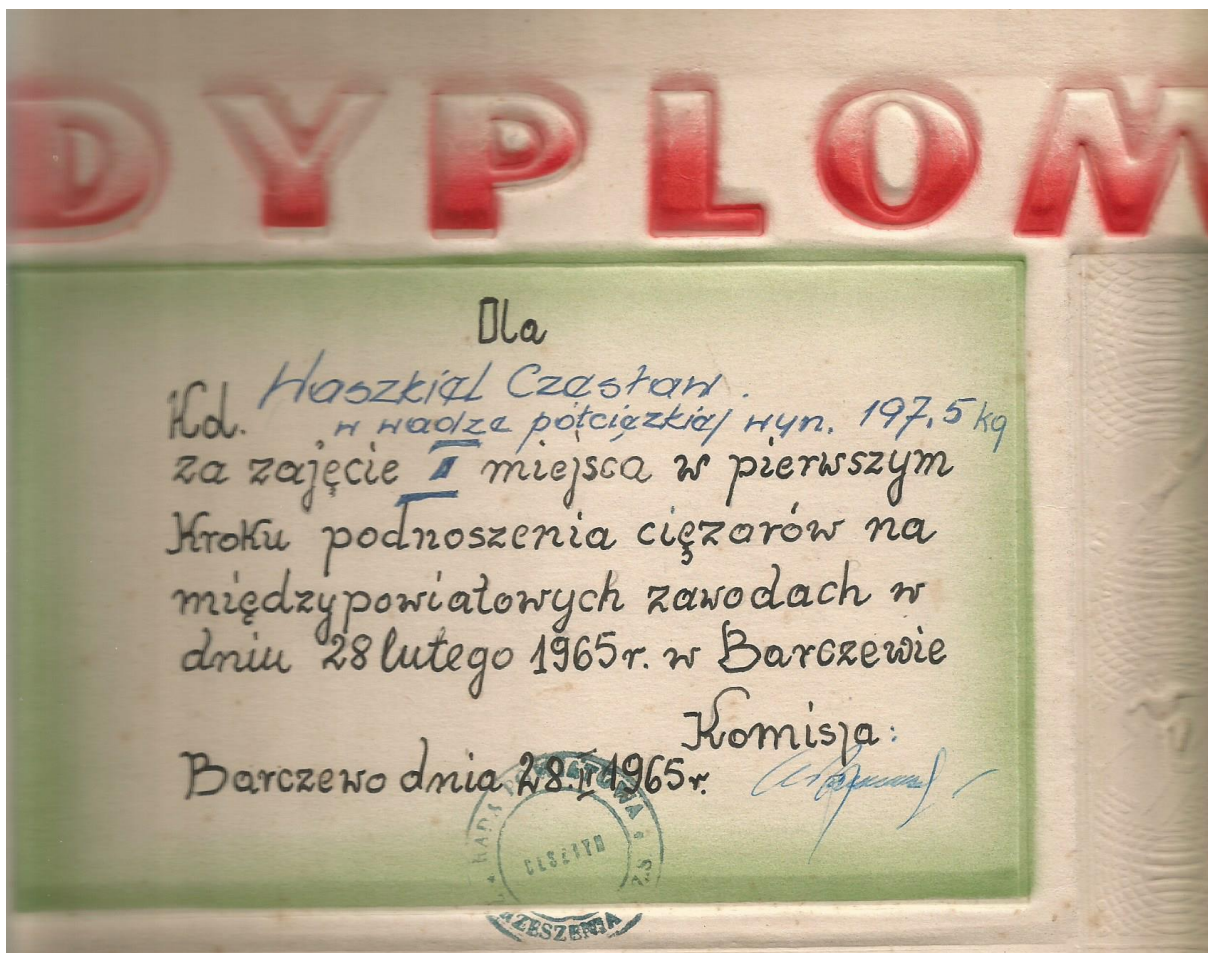 DYPLOM
Dla
Kol. Waszkiel Czesław.
w wadze półciężkiej wyn. 197,5 kg
za zajęcie I miejsca w pierwszym
Kroku podnoszenia ciężarów na
międzypowiatowych zawodach w
dniu 28 lutego 1965r. w Barczewie
Komisja:
Barczewo dnia 28.II 1965r.
RADA POWIATOWA
OLSZTYN
ZRZESZENIA